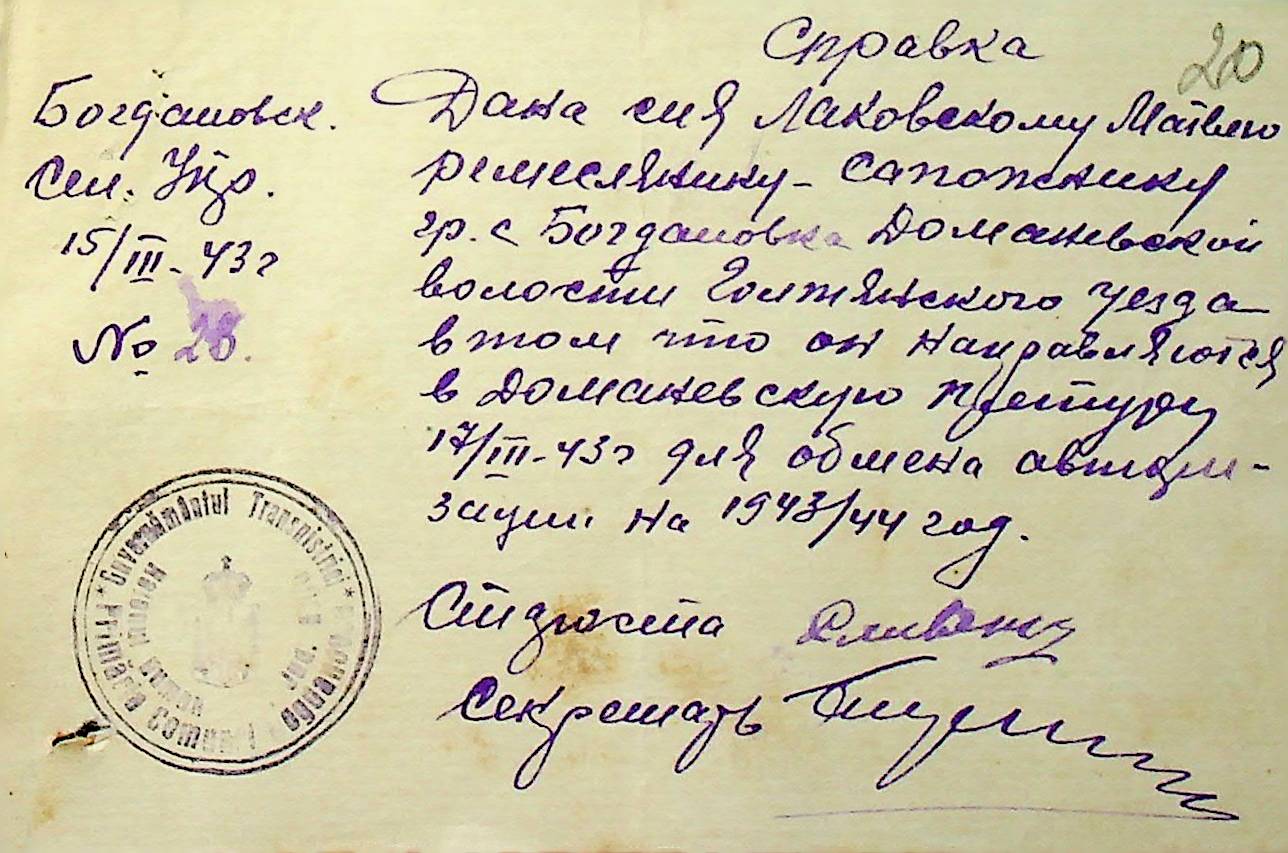 Справка
20
Богдановск.
Сел. Упр.
15/III-43 г
№ 28.
Дана сия Лаковскому Матвею
ремеслянику-сапожнику
гр. с Богдановка Доманевской
волости Голтянского уезда
в том что он направляются
в Доманевскую претуру
17/III-43 г для обмена автори-
зации на 1943/44 год.
Староста
Секретарь
* Guvernământul Transnistriei *
Primăria Comunei
Raionul